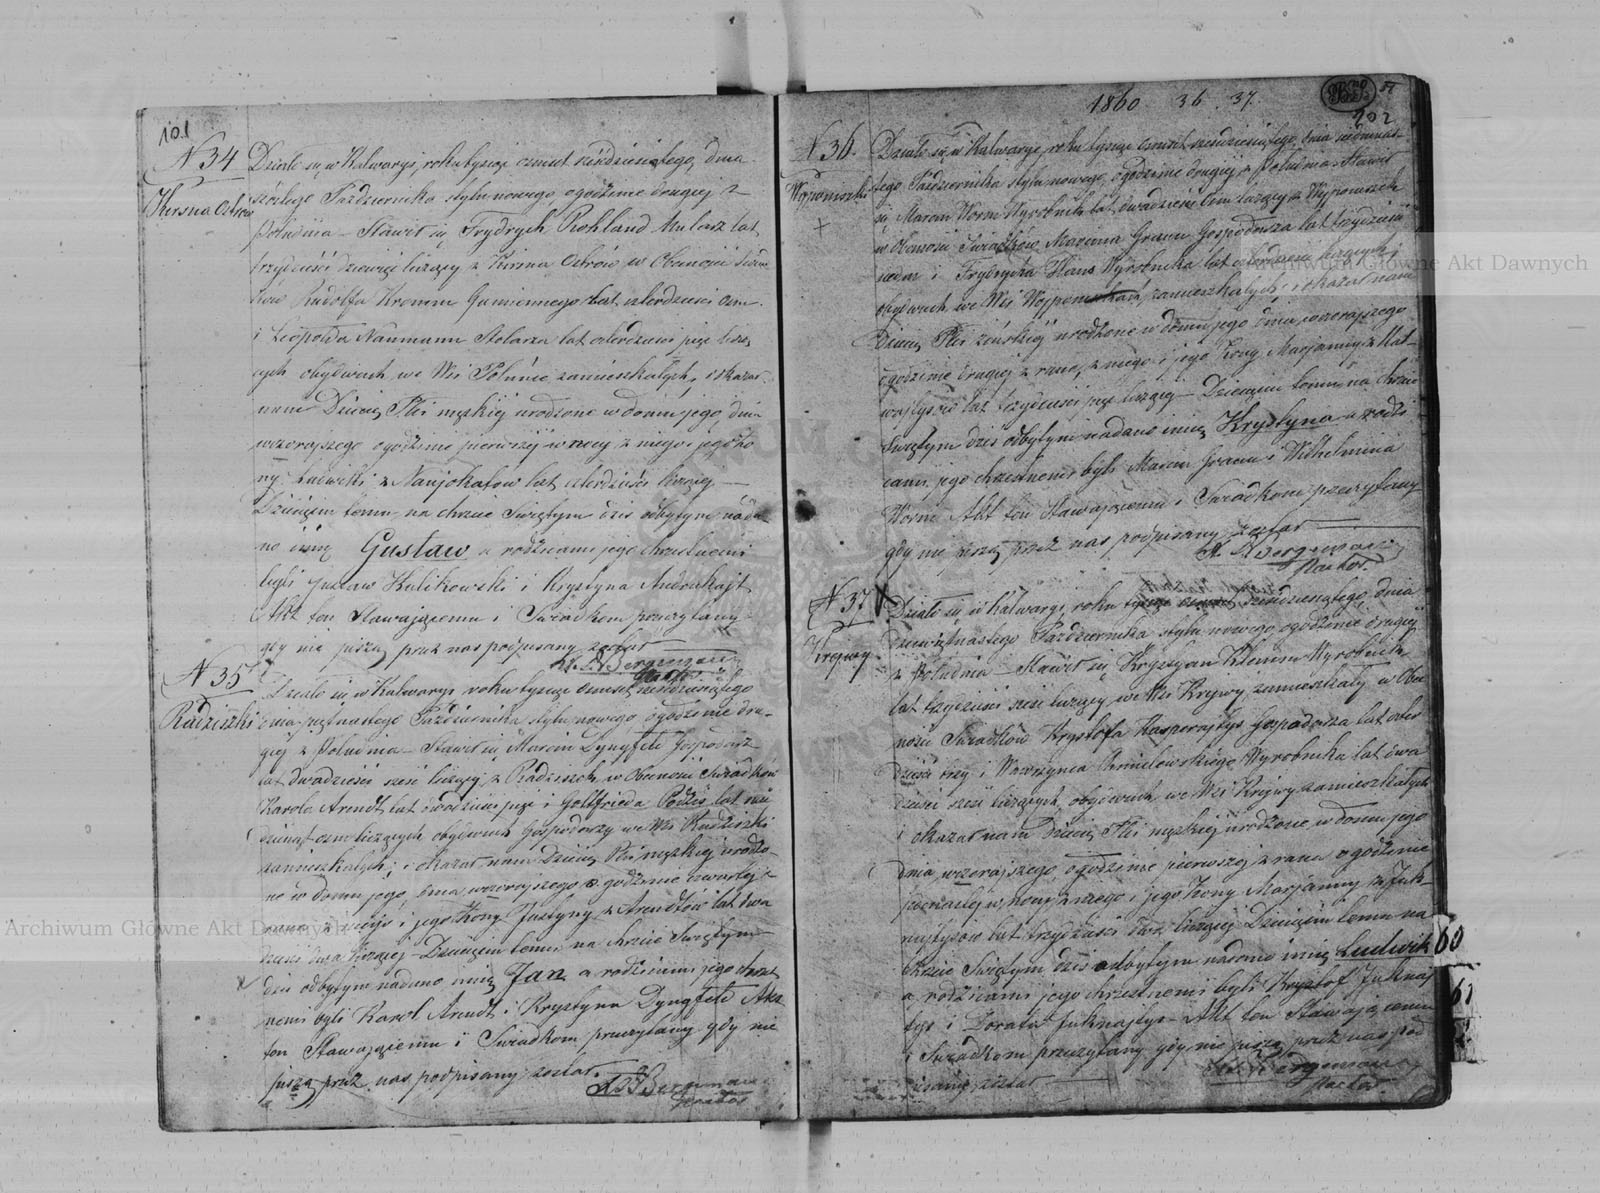 101
N 34
Kirsna Ostrów
Działo się w Kalwaryi, roku tysiąc ośmset sześćdziesiątego, dnia
szóstego Października stylu nowego, o godzinie drugiej z
południa – Stawił się Frydrych Rohland Mularz lat
trzydzieści dziewięć liczący z Kirsna Ostrów w Obecności Świad
ków Rudolfa Kromm Gumiennego lat czterdzieści osm
i Leopolda Naumann Stolarza lat czterdzieści pięć liczą
cych obydwóch we Wsi zamieszkałych, i okazał
nam Dziecię Płci męzkiéj urodzone w domu jego, dnia
wczorajszego o godzinie pierwszéj w nocy z niego i jego żo
ny Ludwiki z lat czterdzieści liczącej —
Dziecięciu temu na chrzcie Świętym dziś odbytym nada
no imię Gustaw a rodzicami jego chrzestnemi
byli Gustaw Kulikowski i Krystyna
Akt ten Stawającemu i Świadkom przeczytany
gdy nie piszą przez nas podpisany został —
Bergemann
Pastor
N 35
Radziszki
Działo się w Kalwaryi roku tysiąc ośmset sześćdziesiątego
dnia piętnastego Października stylu nowego, o godzinie dru-
giej z Południa – Stawił się Marcin Dyngfeld Gospodarz
lat dwadzieścia sześć liczący z Radziszek, w Obecności Świadków
Karola Arendt lat dwadzieścia pięć i Gottfrieda lat
dziesiąt osm liczących obydwóch Gospodarzy we Wsi Radziszki
zamieszkałych; i okazał nam Dziecię Płci męzkiej urodzo-
ne w domu jego, dnia wczorajszego o godzinie czwartej z
rana z niego i jego Żony Justyny z Arendtów lat dwa
dzieścia dwa liczącej – Dziecięciu temu na Chrzcie Świętym
dziś odbytym nadano imię Jan a rodzicami jego chrzest
nemi byli Karol Arendt i Krystyna Dyngfeld Akt
ten Stawającemu i Świadkom przeczytany gdy nie
piszą przez nas podpisany został.
Bergemann
Pastor
1860 36. 37.
102
N 36.
Wojponiszki
Działo się w Kalwaryi, roku tysiąc ośmset sześćdziesiątego, dnia siedmnas-
tego Października stylu nowego, o godzinie drugiéj z Południa – Stawił
się Marcin Worm Wyrobnik lat dwadzieścia liczący z Wojponiszek
w Obecności Świadków Marcina Graun Gospodarza lat trzydzieści
i Frydrycha Hans Wyrobnika lat liczących
obydwóch we Wsi zamieszkałych, i okazał nam
Dziecię Płci żeńskiéj urodzone w domu jego dnia wczorajszego
o godzinie drugiej z rana, z niego i jego Żony Marjanny z Mat-
lat trzydzieści pięć liczącej – Dziecięciu temu na chrzcie
Świętym dziś odbytym nadano imię Krystyna a rodzi
cami jego chrzestnemi byli Marcin Graun i Wilhelmina
Worm Akt ten Stawającemu i Świadkom przeczytany
gdy nie piszą przez nas podpisany został —
Bergemann
Pastor
N 37
Krejwy
Działo się w Kalwaryi, roku tysiąc ośmset sześćdziesiątego, dnia
dziewiętnastego Października stylu nowego, o godzinie drugiéj
z Południa – Stawił się Krystyan Klemm Wyrobnik
lat trzydzieści sześć liczący we Wsi Krejwy zamieszkały w Obe
cności Świadków Krysztofa Kasperajtys Gospodarza lat czter
dzieści trzy i Wawrzyńca Chmielewskiego Wyrobnika lat dwa
dzieścia sześć liczących, obydwóch we Wsi Krejwy zamieszkałych
i okazał nam Dziecię Płci męzkiéj urodzone w domu jego
dnia wczorajszego, o godzinie pierwszéj z rana o godzinie
w nocy z niego i jego Żony Marjanny z Juk-
najtysów lat trzydzieści dwa liczącej Dziecięciu temu na
Chrzcie Świętym dziś odbytym nadano imię Ludwik
a rodzicami jego chrzestnemi byli Krysztof Juknaj
tys i Dorota Juknajtys – Akt ten Stawającemu
i Świadkom przeczytany gdy nie piszą przez nas pod
pisany został —
Bergemann
Pastor
60
Archiwum Główne Akt Dawnych
Archiwum Główne Akt Dawnych